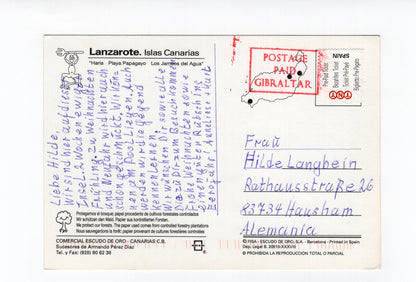 Lanzarote. Islas Canarias
"Haria Playa Papagayo Los Jameos del Agua"
Liebe Hilde,
wir sind hier auf dieser
Insel. 2 Wochen ewiger
Frühling. Zu Weihnachten
und Neujahr wird hier auch
schön geschmückt. Wir
werden
kennen lernen.
Wir wünschen Dir sowie alle
die zu Dir zum Besuch kommen
Frohe Weihnachten sowie
einen guten Rutsch ins
Protegemos el bosque; papel procedente de cultivos forestales controlados
Wir schützen den Wald. Papier aus kontrollierten Forsten.
We protect our forests. The paper used comes from controlled forestry plantations
Nous sauvegardons la forêt: papier provenant de cultures forestières controlées
COMERCIAL ESCUDO DE ORO - CANARIAS C.B.
Sucesores de Armando Pérez Diaz
Tel. y Fax: (928) 80 62 38
POSTAGE
PAID
GIBRALTAR
SPAIN
TNT
Frau
Hilde Langbein
Rathausstraße 26
83734 Hausham
Alemania
© FISA - ESCUDO DE ORO, S.A. - Barcelona - Printed in Spain
Dep. Legal B. 20916-XXXVIII
© PROHIBIDA LA REPRODUCCION TOTAL O PARCIAL